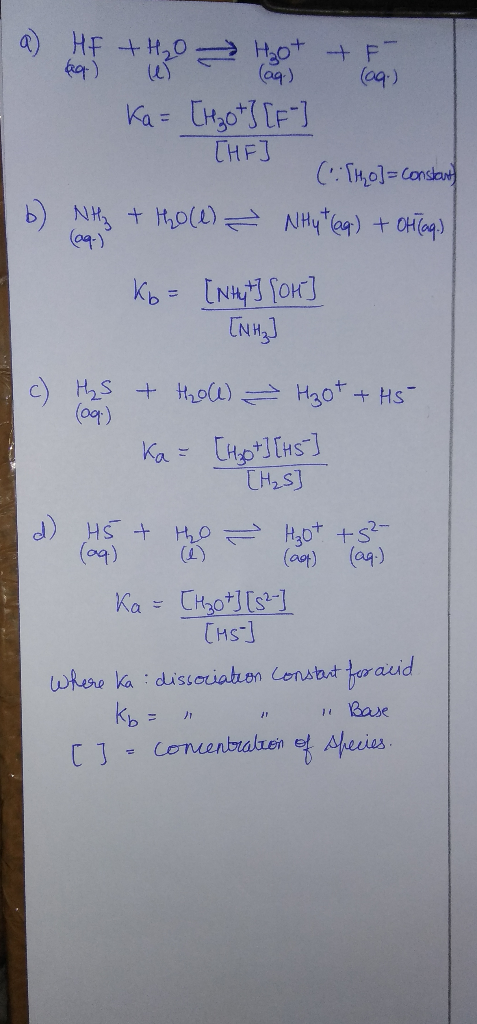 a) HF + H₂O ⇌ H₃O⁺ + F⁻
(aq.) (l) (aq.) (aq.)
Ka = [H₃O⁺][F⁻]
[HF]
(∵ [H₂O] = constant)
b) NH₃ + H₂O(l) ⇌ NH₄⁺(aq) + OH⁻(aq.)
(aq.)
Kb = [NH₄⁺][OH⁻]
[NH₃]
c) H₂S + H₂O(l) ⇌ H₃O⁺ + HS⁻
(aq.)
Ka = [H₃O⁺][HS⁻]
[H₂S]
d) HS⁻ + H₂O ⇌ H₃O⁺ + S²⁻
(aq) (l) (aq) (aq.)
Ka = [H₃O⁺][S²⁻]
[HS⁻]
Where Ka : dissociation constant for acid
Kb = " " " Base
[ ] = concentration of species.